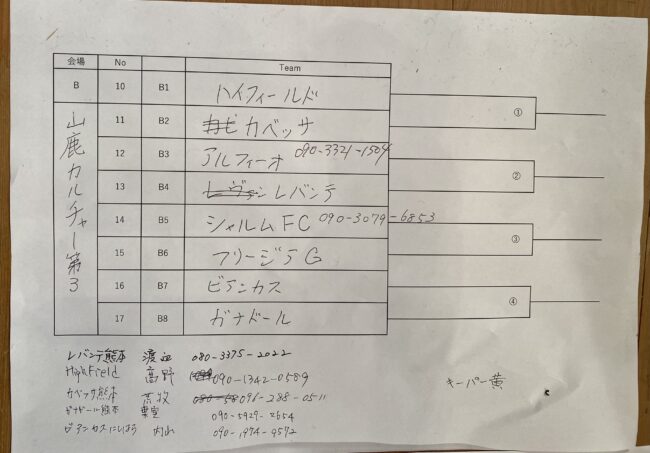 会場 No Team
B 10 B1 ハイフィールド
11 B2 カベッサ
12 B3 アルフィーオ 090-3321-1504
13 B4 レバンテ
14 B5 シャルムFC 090-3079-6853
15 B6 フリージアG
16 B7 ビアンカス
17 B8 ガナドール
山鹿カルチャー第3
①
②
③
④
レバンテ熊本 渡辺 080-3375-2022
HighField 高野 090-1342-0589
カベッサ熊本 荒牧 096-288-0511
ガナドール熊本 090-5929-2654
ビアンカスにしはら 内山 090-1974-9572
キーパー黄